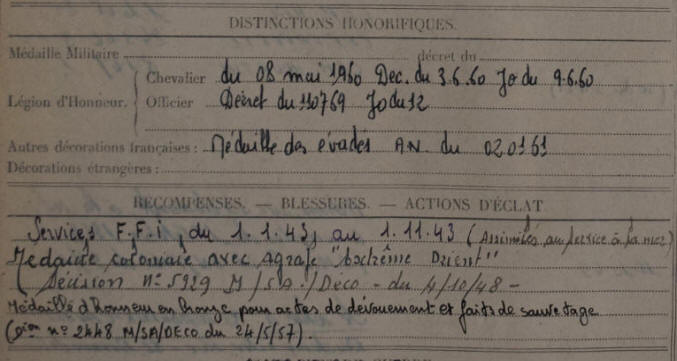 DISTINCTIONS HONORIFIQUES.
Médaille Militaire décret du
Chevalier du 08 mai 1960 Dec. du 3.6.60 Jo du 9.6.60
Légion d'Honneur. Officier Décret du 110769 Jo du 12
Autres décorations françaises : Médaille des évadés A.N. du 020161
Décorations étrangères :
RECOMPENSES. — BLESSURES. — ACTIONS D'ÉCLAT
Services F.F.i, du 1.1.43, au 1.11.43 (Assimilés au service à la mer)
Medaille coloniale avec agrafe "Extrême Orient"
(Décision N° 5929 M/SA./Déco - du 4/10/48 -
Médaille d'honneur en bronze pour actes de dévouement et faits de sauvetage
(Dion n° 2448 M/SA/DECO du 24/5/57)